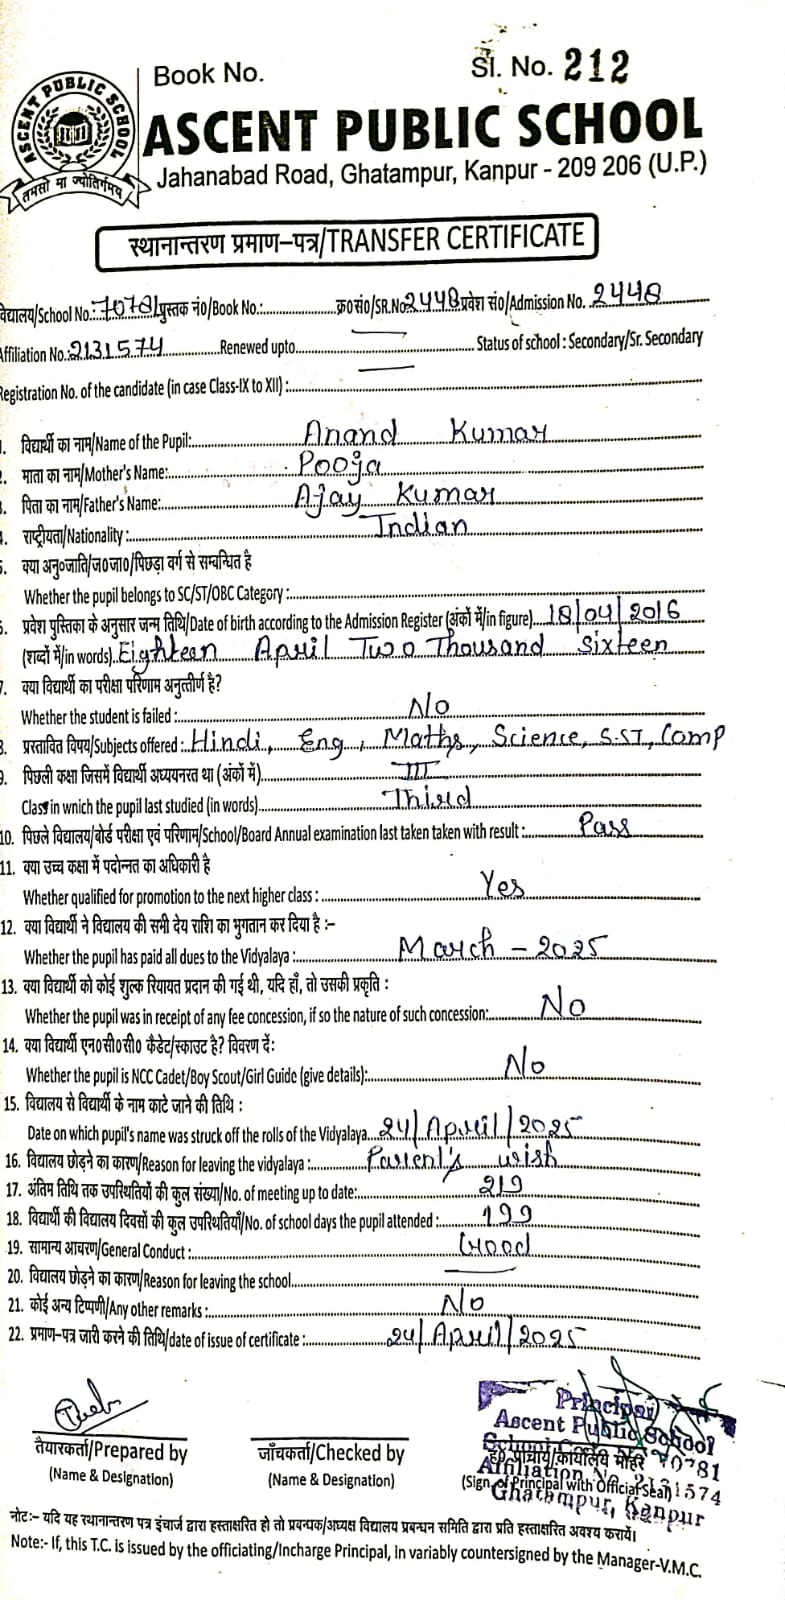 Book No. Sl. No. 212
ASCENT PUBLIC SCHOOL
तमसो मा ज्योतिर्गमय
ASCENT PUBLIC SCHOOL
Jahanabad Road, Ghatampur, Kanpur - 209 206 (U.P.)
स्थानान्तरण प्रमाण-पत्र/TRANSFER CERTIFICATE
विद्यालय/School No.: 70781 पुस्तक नं०/Book No.: क्र०सं०/SR.No 2448 प्रवेश सं०/Admission No. 2448
Affiliation No.: 2131574 Renewed upto Status of school : Secondary/Sr. Secondary
Registration No. of the candidate (in case Class-IX to XII) :
1. विद्यार्थी का नाम/Name of the Pupil: Anand Kumar
2. माता का नाम/Mother's Name: Pooja
3. पिता का नाम/Father's Name: Ajay Kumar
4. राष्ट्रीयता/Nationality : Indian
5. क्या अनु०जाति/ज०जा०/पिछड़ा वर्ग से सम्बन्धित है
Whether the pupil belongs to SC/ST/OBC Category :
6. प्रवेश पुस्तिका के अनुसार जन्म तिथि/Date of birth according to the Admission Register (अंकों में/in figure) 18/04/2016
(शब्दों में/in words) Eighteen April Two Thousand Sixteen
7. क्या विद्यार्थी का परीक्षा परिणाम अनुत्तीर्ण है?
Whether the student is failed : No
8. प्रस्तावित विषय/Subjects offered : Hindi, Eng, Maths, Science, S.ST, Comp
9. पिछली कक्षा जिसमें विद्यार्थी अध्ययनरत था (अंकों में) III
Class in wnich the pupil last studied (in words) Third
10. पिछले विद्यालय/बोर्ड परीक्षा एवं परिणाम/School/Board Annual examination last taken taken with result : Pass
11. क्या उच्च कक्षा में पदोन्नत का अधिकारी है
Whether qualified for promotion to the next higher class : Yes
12. क्या विद्यार्थी ने विद्यालय की सभी देय राशि का भुगतान कर दिया है :-
Whether the pupil has paid all dues to the Vidyalaya : March - 2025
13. क्या विद्यार्थी को कोई शुल्क रियायत प्रदान की गई थी, यदि हाँ, तो उसकी प्रकृति :
Whether the pupil was in receipt of any fee concession, if so the nature of such concession: No
14. क्या विद्यार्थी एन०सी०सी० कैडेट/स्काउट है? विवरण दें:
Whether the pupil is NCC Cadet/Boy Scout/Girl Guide (give details): No
15. विद्यालय से विद्यार्थी के नाम काटे जाने की तिथि :
Date on which pupil's name was struck off the rolls of the Vidyalaya 24/April/2025
16. विद्यालय छोड़ने का कारण/Reason for leaving the vidyalaya : Parient's wish
17. अंतिम तिथि तक उपस्थितियों की कुल संख्या/No. of meeting up to date: 219
18. विद्यार्थी की विद्यालय दिवसों की कुल उपस्थितियाँ/No. of school days the pupil attended : 199
19. सामान्य आचरण/General Conduct : Good
20. विद्यालय छोड़ने का कारण/Reason for leaving the school
21. कोई अन्य टिप्पणी/Any other remarks : No
22. प्रमाण-पत्र जारी करने की तिथि/date of issue of certificate : 24/April/2025
Principal
Ascent Public School
तैयारकर्ता/Prepared by जाँचकर्ता/Checked by ह० प्राचार्य/कार्यालय मोहर 70781
(Name & Designation) (Name & Designation) (Sign. of Principal with Official Seal)
Affiliation No. 2131574
Ghatampur, Kanpur
नोट:- यदि यह स्थानान्तरण पत्र इंचार्ज द्वारा हस्ताक्षरित हो तो प्रवन्धक/अध्यक्ष विद्यालय प्रबन्धन समिति द्वारा प्रति हस्ताक्षरित अवश्य करायें।
Note:- If, this T.C. is issued by the officiating/Incharge Principal, in variably countersigned by the Manager-V.M.C.